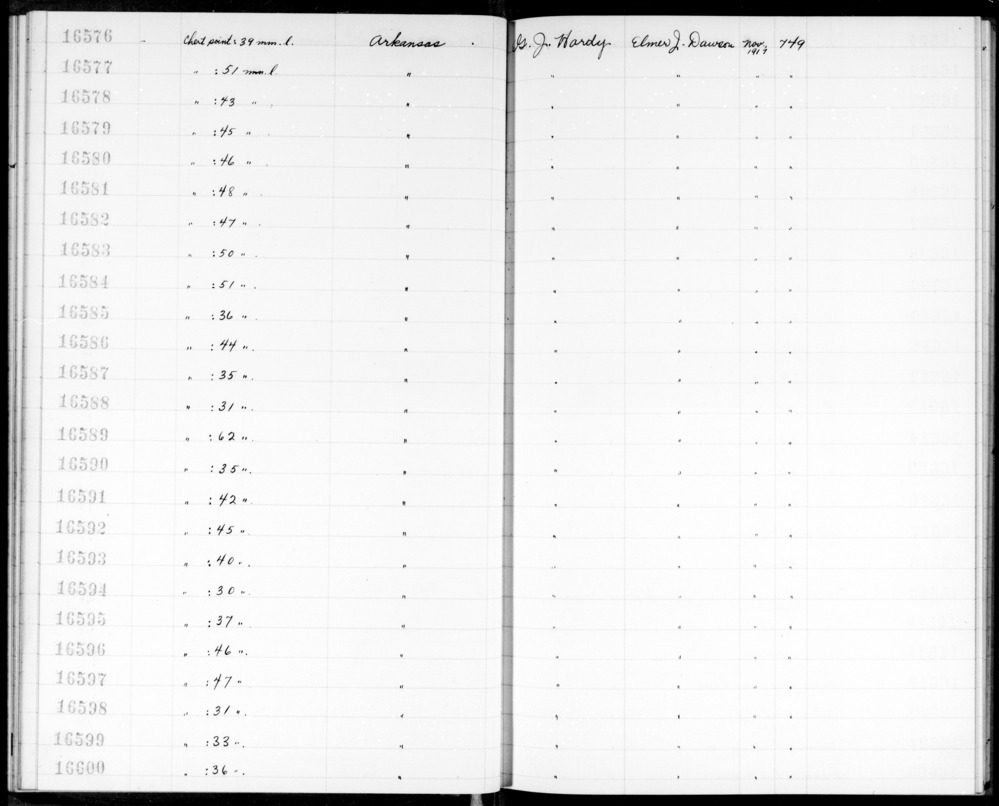 16576 Chert point: 39 mm. l. Arkansas . G. J. Hardy Elmer J. Dawson Nov. 1917 749
16577 " : 51 mm. l " " " " "
16578 " : 43 " . " " " " "
16579 " : 45 " . " " " " "
16580 " : 46 " . " " " " "
16581 " : 48 " . " " " " "
16582 " : 47 " . " " " " "
16583 " : 50 " . " " " " "
16584 " : 51 " . " " " " "
16585 " : 36 " . " " " " "
16586 " : 44 " . " " " " "
16587 " : 35 " . " " " " "
16588 " : 31 " . " " " " "
16589 " : 62 " . " " " " "
16590 " : 35 " . " " " " "
16591 " : 42 " . " " " " "
16592 " : 45 " . " " " " "
16593 " : 40 " . " " " " "
16594 " : 30 " . " " " " "
16595 " : 37 " . " " " " "
16596 " : 46 " . " " " " "
16597 " : 47 " " " " " "
16598 " : 31 " . " " " " "
16599 " : 33 " . " " " " "
16600 " : 36 " . " " " " "